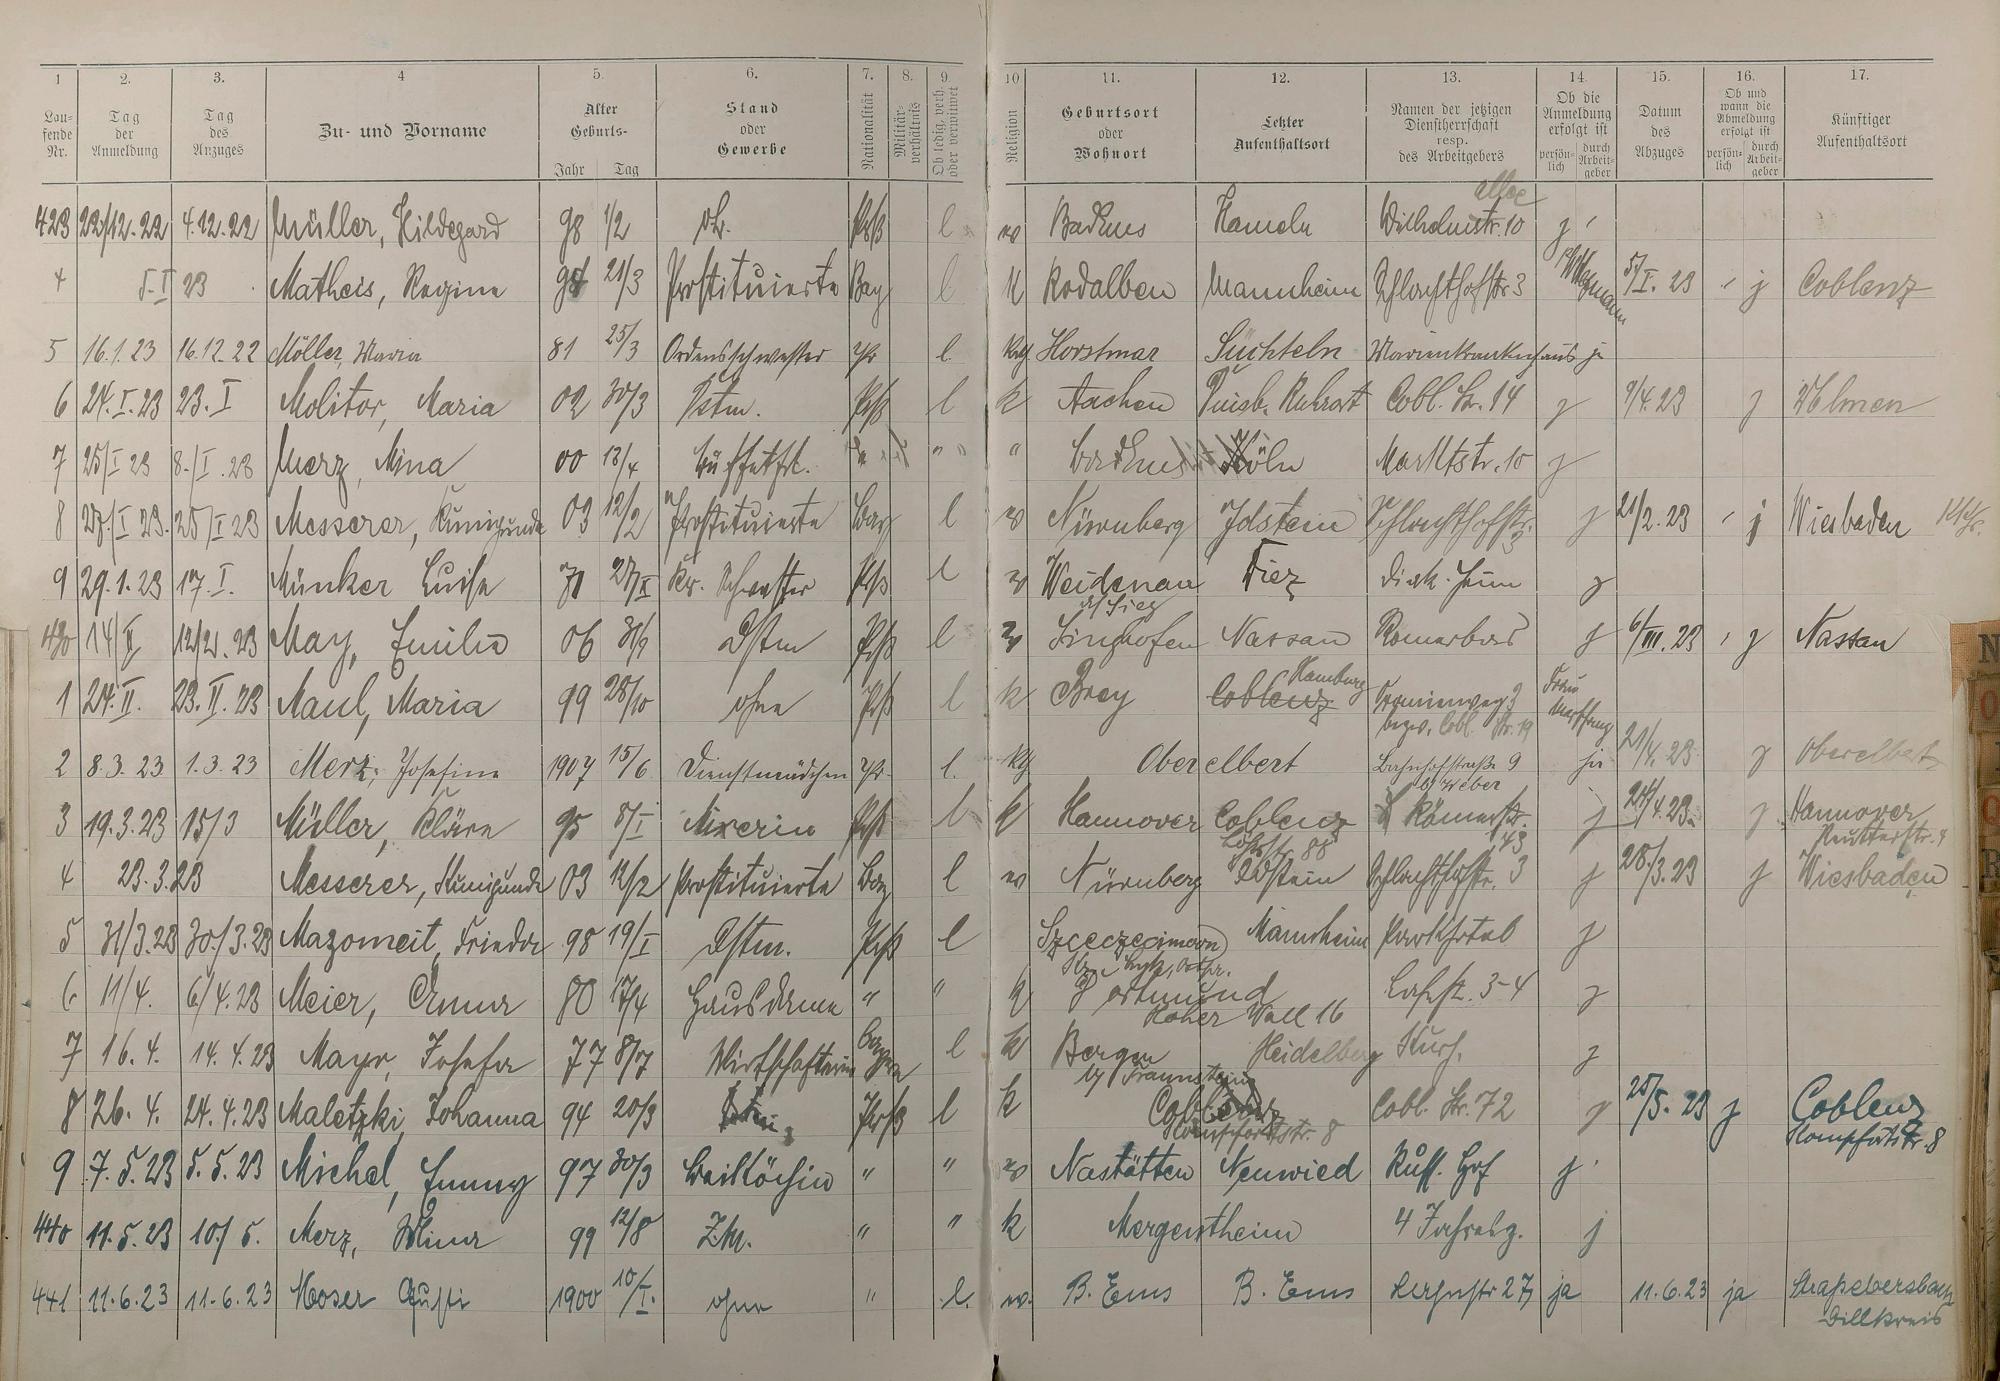 1 2. 3. 4 5. 6. 7. 8. 9. 10 11. 12. 13. 14. 15. 16. 17.
Lau-
fende
Nr.
Tag
der
Anmeldung
Tag
des
Anzuges
Zu- und Vorname
Alter
Geburts-
Jahr Tag
Stand
oder
Gewerbe
Nationalität
Militär-
verhältnis
Ob ledig, verh.
oder verwitwet
Religion
Geburtsort
oder
Wohnort
Letzter
Aufenthaltsort
Namen der jetzigen
Dienstherrschaft
resp.
des Arbeitgebers
Ob die
Anmeldung
erfolgt ist
persön-
lich
durch
Arbeit-
geber
Datum
des
Abzuges
Ob und
wann die
Abmeldung
erfolgt ist
persön-
lich
durch
Arbeit-
geber
Künftiger
Aufenthaltsort
423 22/12.22 4.12.22 Müller, Hildegard 98 1/2 oh. Prß l w BadEms Hameln Wilhelmstr. 10 j
4 5.I 23 Matheis, Regine 21/3 Prostituierte Bay l K Rodalben Mannheim Schlachthofstr 3 5/I. 23 j Coblenz
5 16.1.23 16.12.22 Möller, Maria 81 25/3 Ordensschwester Pr l. kth Horstmar Süchteln Marienkrankenhaus ja
6 24.I.23 23.I Molitor, Maria 02 30/3 Dstm. Prß l k Aachen Duisb. Ruhrort Cobl. Str. 14 j 9/4.23 j Ulmen
7 25/I 23 8./I.23 Merz, Mina 00 13/4 Büffetfrl. " " " BadEms Köln Marktstr. 10 j
8 27./I 23. 25/I 23 Messerer, Kunigunde 03 12/2 Prostituierte Bay l w Nürnberg Idstein Schlachthofstr. 3 j 21/2.23 j Wiesbaden
9 29.1.23 17.I. Münker Luise 71 27/II Kr. Schwester Prß l w Weidenau a/Sieg Diez Diak. Heim j
430 14/II 12/2.23 May, Emilie 06 31/9 Dstm Prß l w Singhofen Nassau Römerbad j 6/III.23 j Nassau
1 24.II. 23.II.23 Maul, Maria 99 28/10 ohne Prß l k Brey Coblenz Hamburg
bezw. Cobl. Str. 19
2 8.3.23 1.3.23 Merz, Josefine 1907 15/6 Dienstmädchen Pr. l. kth Oberelbert Bahnhofstraße 9 b/Weber ja 21/4.23 j Oberelbert
3 19.3.23 15/3 Müller, Kläre 95 8/I Mixerin Prß l k Hannover Coblenz Römerstr. 43 j 24/4.23 j Hannover
4 23.3.23 Messerer, Kunigunde 03 12/2 Prostituierte Bay l w Nürnberg Idstein Schlachthofstr. 3 j 28/3.23 j Wiesbaden
5 31/3.23 30./3.23 Mazomeit, Frieda 98 19/I Dstm. Prß l Mannheim Parkhotel j
6 11/4. 6/4.23 Meier, Anna 80 17/4 Hausdame " " k Dortmund
Hoher Wall 16 Bahnst. 3-4 j
7 16.4. 14.4.23 Mayr, Josefa 77 8/7 Wirtschafterin Bayern l k Bergen
by Traunstein Heidelberg Kurh. j
8 26.4. 24.4.23 Maletzki, Johanna 94 20/3 Prß l k Coblenz Cobl. Str. 72 j 25/5.23 j Coblenz
9 7.5.23 5.5.23 Michel, Emmy 97 30/3 Beiköchin " " w Nastätten Neuwied Russ. Hof j
440 11.5.23 10./5. Merz, Mina 99 12/8 Zm. " " k Mergentheim 4 Jahresz. j
441 11.6.23 11.6.23 Moser Gusti 1900 10/I. ohne " l. w. B. Ems B. Ems Lahnstr 27 ja 11.6.23 ja Straßebersbach
Dillkreis